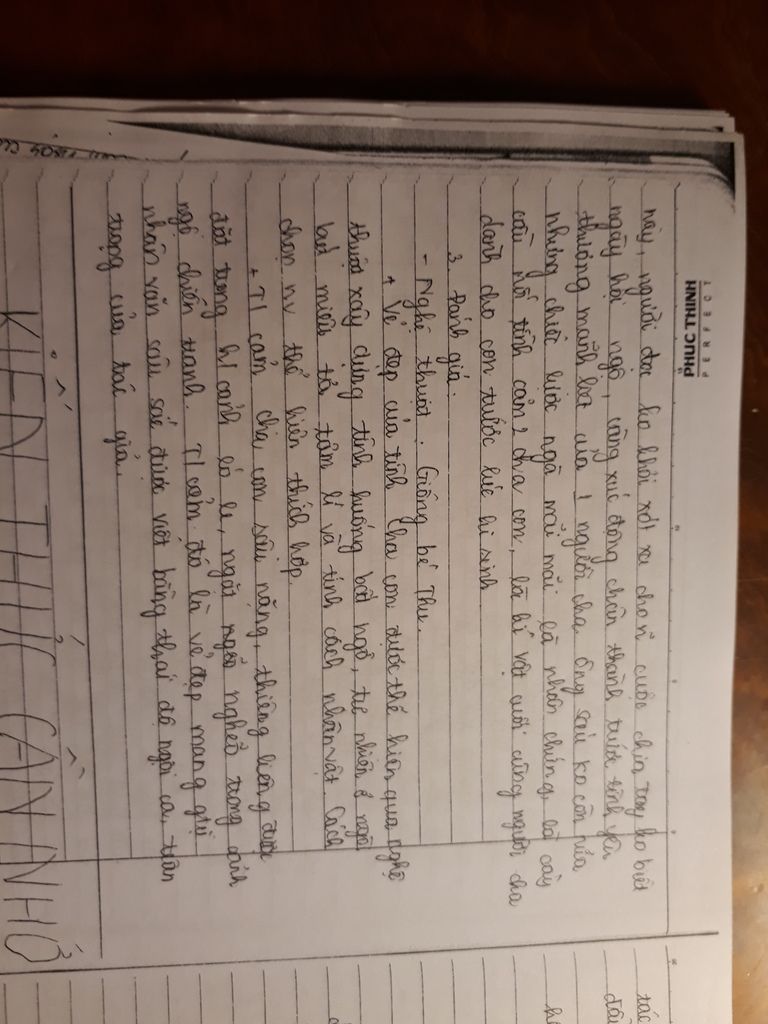 PERFECT
PHUC THINH
này, người đọc ko khỏi xót xa cho n~ cuộc chia tay ko biết
ngày hội ngộ, càng xúc động chân thành trước tình yêu
thương mãnh liệt của 1 người cha. Ông Sáu ko còn nữa
nhưng chiếc lược ngà mãi mãi là nhân chứng, là cây
cầu nối tình cảm 2 cha con, là kỉ vật cuối cùng người cha
dành cho con trước lúc hi sinh
3. Đánh giá.
- Nghệ thuật: Giống bé Thu.
+ Vẻ đẹp của tình cha con được thể hiện qua nghệ
thuật xây dựng tình huống bất ngờ, tự nhiên, ngòi
bút miêu tả tâm lí và tính cách nhân vật. Cách
chọn nv thể hiện thích hợp.
+ T/ cảm cha con sâu nặng, thiêng liêng được
đặt trong h/ cảnh éo le, ngặt nghèo trong cảnh
ngộ chiến tranh. T/ cảm đó là vẻ đẹp mang gtrị
nhân văn sâu sắc được viết bằng thái độ ngợi ca, trân
trọng của tác giả.
KIẾN THỨC CẦN NHỚ